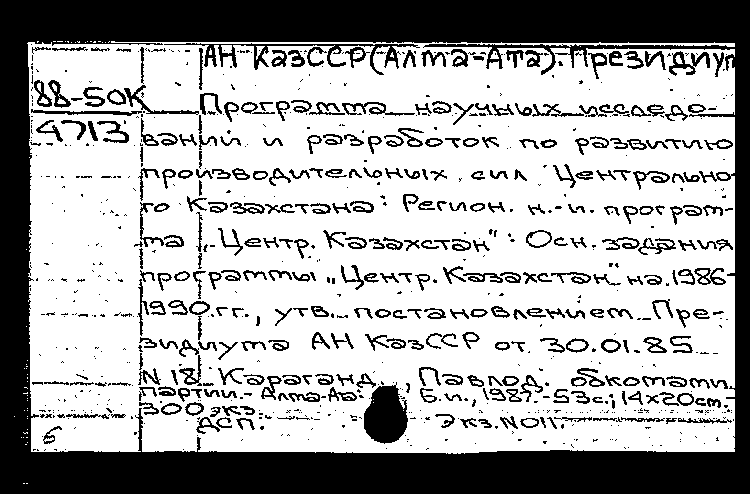 АН КазССР (Алма-Ата). Президиум
88-50К
Программа научных исследо-
4713
ваний и разработок по развитию
производительных сил Центрально-
го Казахстана: Регион. н.-и. програм-
ма „Центр. Казахстан": Осн. задания
программы „Центр. Казахстан" на 1986-
1990 гг., утв. постановлением Пре-
зидиума АН КазССР от 30.01.85
N 18 Караганд., Павлод. обкомами
партии.- Алма-Аа: Б.и., 1987.-53с.; 14х20см.-
300 экз.
ДСП. Экз. N 011.
6